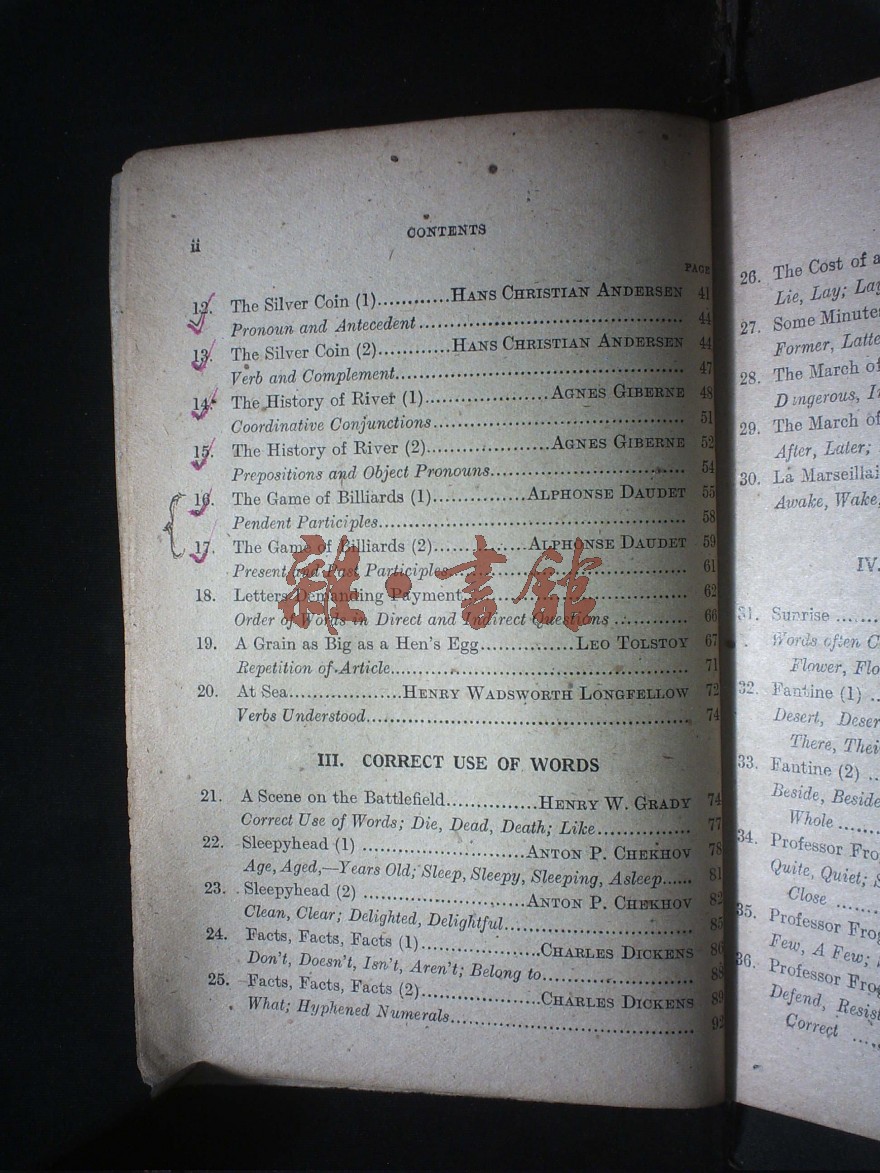 ii
CONTENTS
PAGE
12. The Silver Coin (1)............HANS CHRISTIAN ANDERSEN 41
Pronoun and Antecedent.................... 44
13. The Silver Coin (2)............HANS CHRISTIAN ANDERSEN 44
Verb and Complement.................... 47
14. The History of River (1)....................AGNES GIBERNE 48
Coordinative Conjunctions.................... 51
15. The History of River (2)....................AGNES GIBERNE 52
Prepositions and Object Pronouns.................... 54
16. The Game of Billiards (1)...............ALPHONSE DAUDET 55
Pendent Participles.................... 58
17. The Game of Billiards (2)...............ALPHONSE DAUDET 59
Present and Past Participles.................... 61
18. Letters Demanding Payment.................... 62
Order of Words in Direct and Indirect Questions ............ 66
19. A Grain as Big as a Hen's Egg...............LEO TOLSTOY 67
Repetition of Article.................... 71
20. At Sea....................HENRY WADSWORTH LONGFELLOW 72
Verbs Understood.................... 74
III. CORRECT USE OF WORDS
21. A Scene on the Battlefield...............HENRY W. GRADY 74
Correct Use of Words; Die, Dead, Death; Like............... 77
22. Sleepyhead (1) ....................ANTON P. CHEKHOV 78
Age, Aged,—Years Old; Sleep, Sleepy, Sleeping, Asleep...... 81
23. Sleepyhead (2) ....................ANTON P. CHEKHOV 82
Clean, Clear; Delighted, Delightful.................... 85
24. Facts, Facts, Facts (1)....................CHARLES DICKENS 86
Don't, Doesn't, Isn't, Aren't; Belong to.................... 88
25. Facts, Facts, Facts (2)....................CHARLES DICKENS 89
What; Hyphened Numerals.................... 92
雜·書館
26. The Cost of a
Lie, Lay;
27. Some
Former,
28. The March of
Dangerous,
29. The March of
After, Later;
30. La
Awake, Wake,
IV.
31. Sunrise ........
Words often
Flower,
32. Fantine (1) ..
Desert,
There,
33. Fantine (2) ..
Beside,
Whole ........
34. Professor
Quite, Quiet;
Close ........
35. Professor
Few, A Few;
36. Professor
Defend,
Correct ....